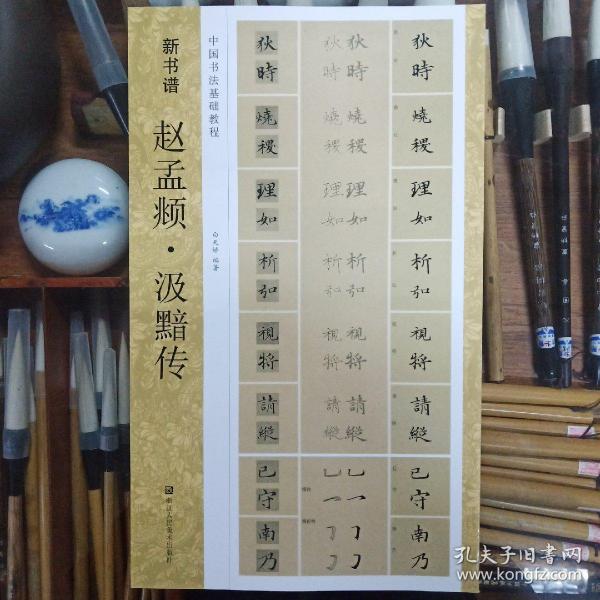 新书谱
赵孟頫·汲黯传
中国书法基础教程
浙江人民美术出版社
狄 狄 狄 狄
時 時 時 時
燒 燒 燒 燒
稷 稷 稷 稷
理 理 理 理
如 如 如 如
析 析 析 析
弘 弘 弘 弘
視 視 視 視
将 将 将 将
請 請 請 請
縱 縱 縱 縱
已 已
守 守
南 南
乃 乃
孔夫子旧书网
www.kongfz.com